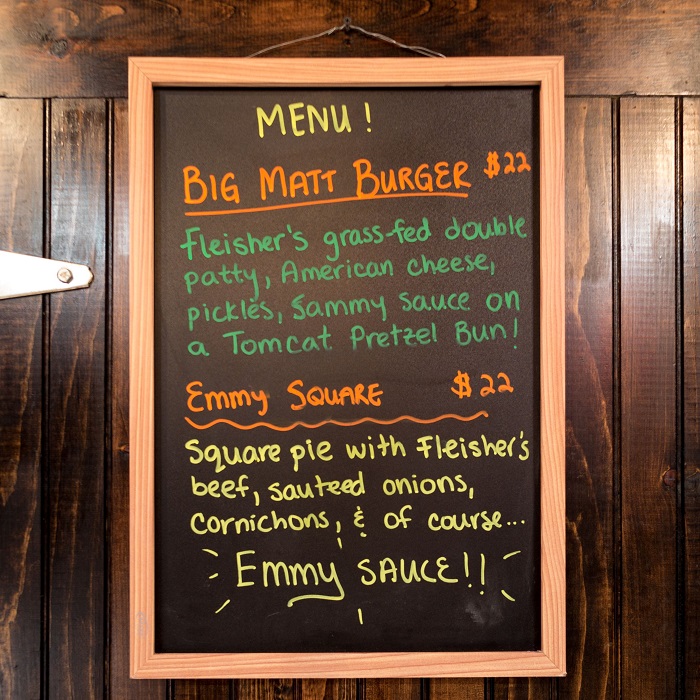 MENU!
BIG MATT BURGER $22
Fleisher's grass-fed double
patty, American cheese,
pickles, Sammy sauce on
a Tomcat Pretzel Bun!
Emmy SQUARE $22
Square pie with Fleisher's
beef, sauteed onions,
cornichons, & of course...
Emmy SAUCE!!